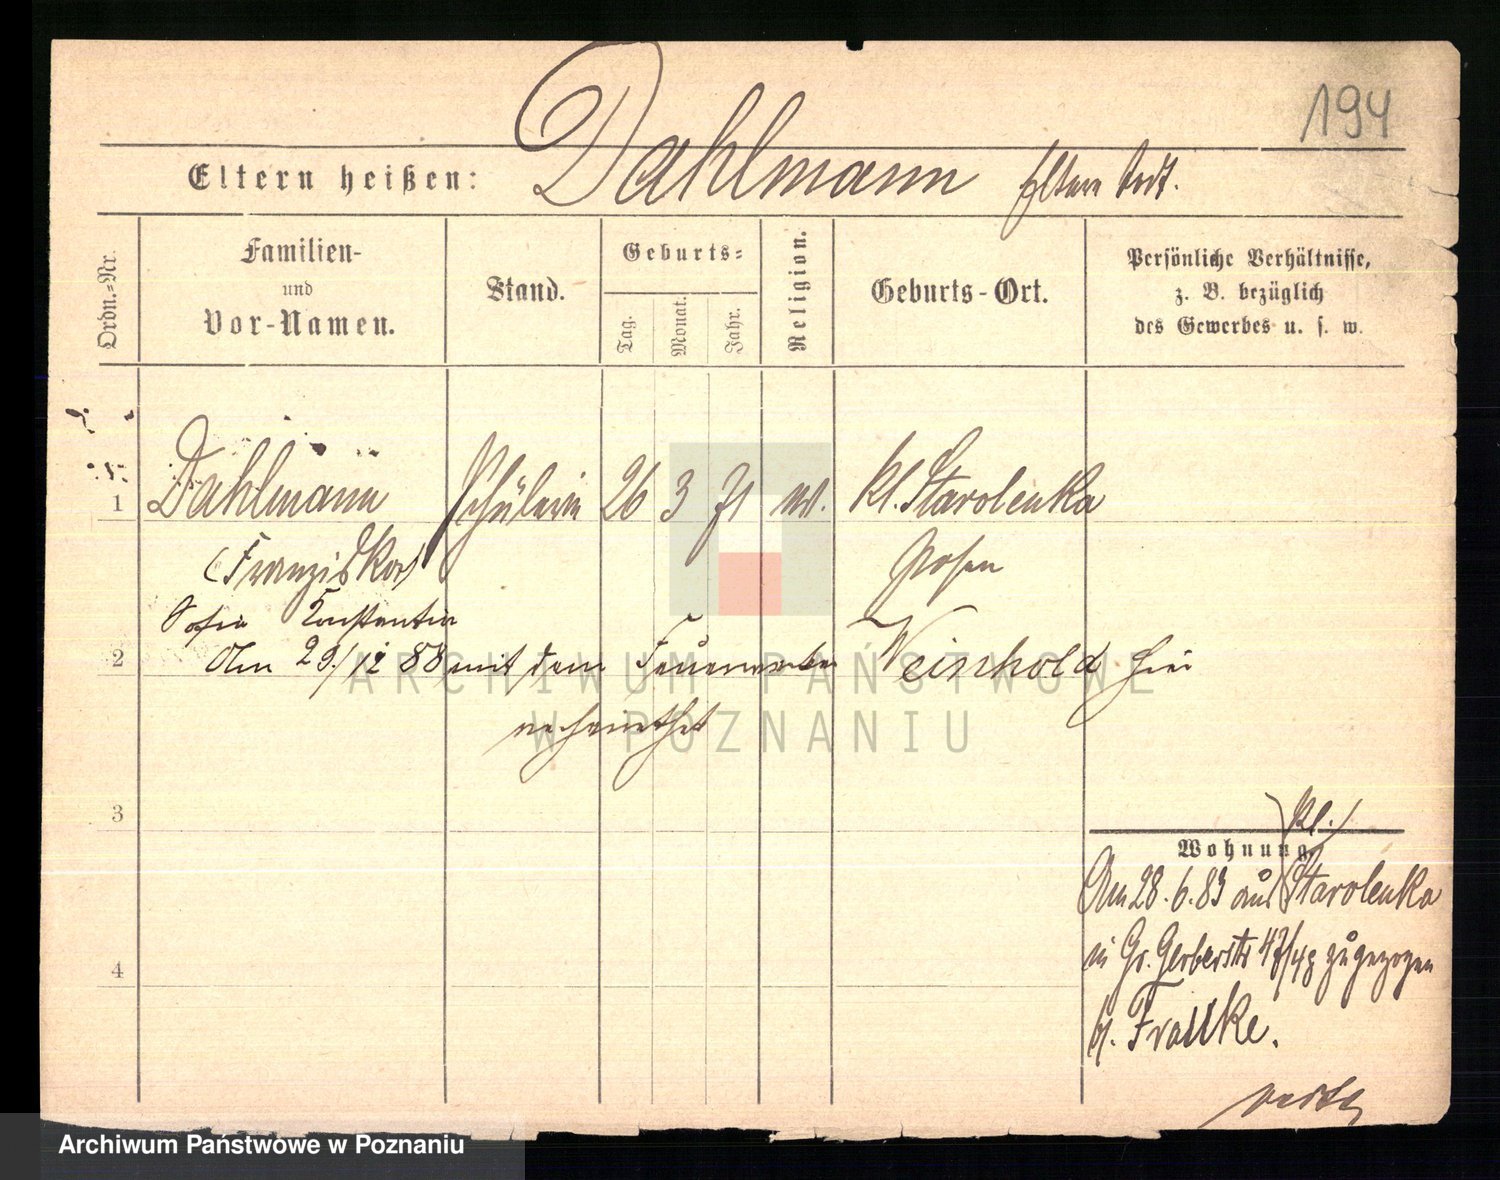 194
Eltern heißen: Dahlmann Eltern todt.
Ordn.=Nr.
Familien-
und
Vor-Namen.
Stand.
Geburts=
Tag.
Monat.
Jahr.
Religion.
Geburts-Ort.
Persönliche Verhältnisse,
z. B. bezüglich
des Gewerbes u. s. w.
1 Dahlmann Schülerin 26 3 71 kl. Starolenka
(Franziska) Posen
Sofia Konstantia
2 Am 29./12 88 mit dem Feuerwerker Weinhold hier
verheirathet
3
4
Wohnung.
kl.
Am 28.6.83 aus Starolenka
in Gr. Gerberstr 47/48 zugezogen
b/. Franke.
ARCHIWUM PAŃSTWOWE
W POZNANIU
Archiwum Państwowe w Poznaniu